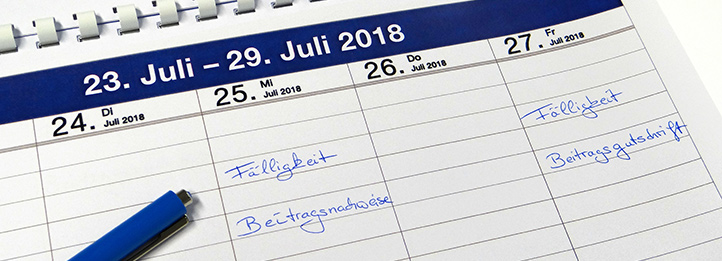 23. Juli – 29. Juli 2018
24. Di Juli 2018
25. Mi Juli 2018
26. Do Juli 2018
27. Fr Juli 2018
Fälligkeit
Beitragsnachweise
Fälligkeit
Beitragsgutschrift